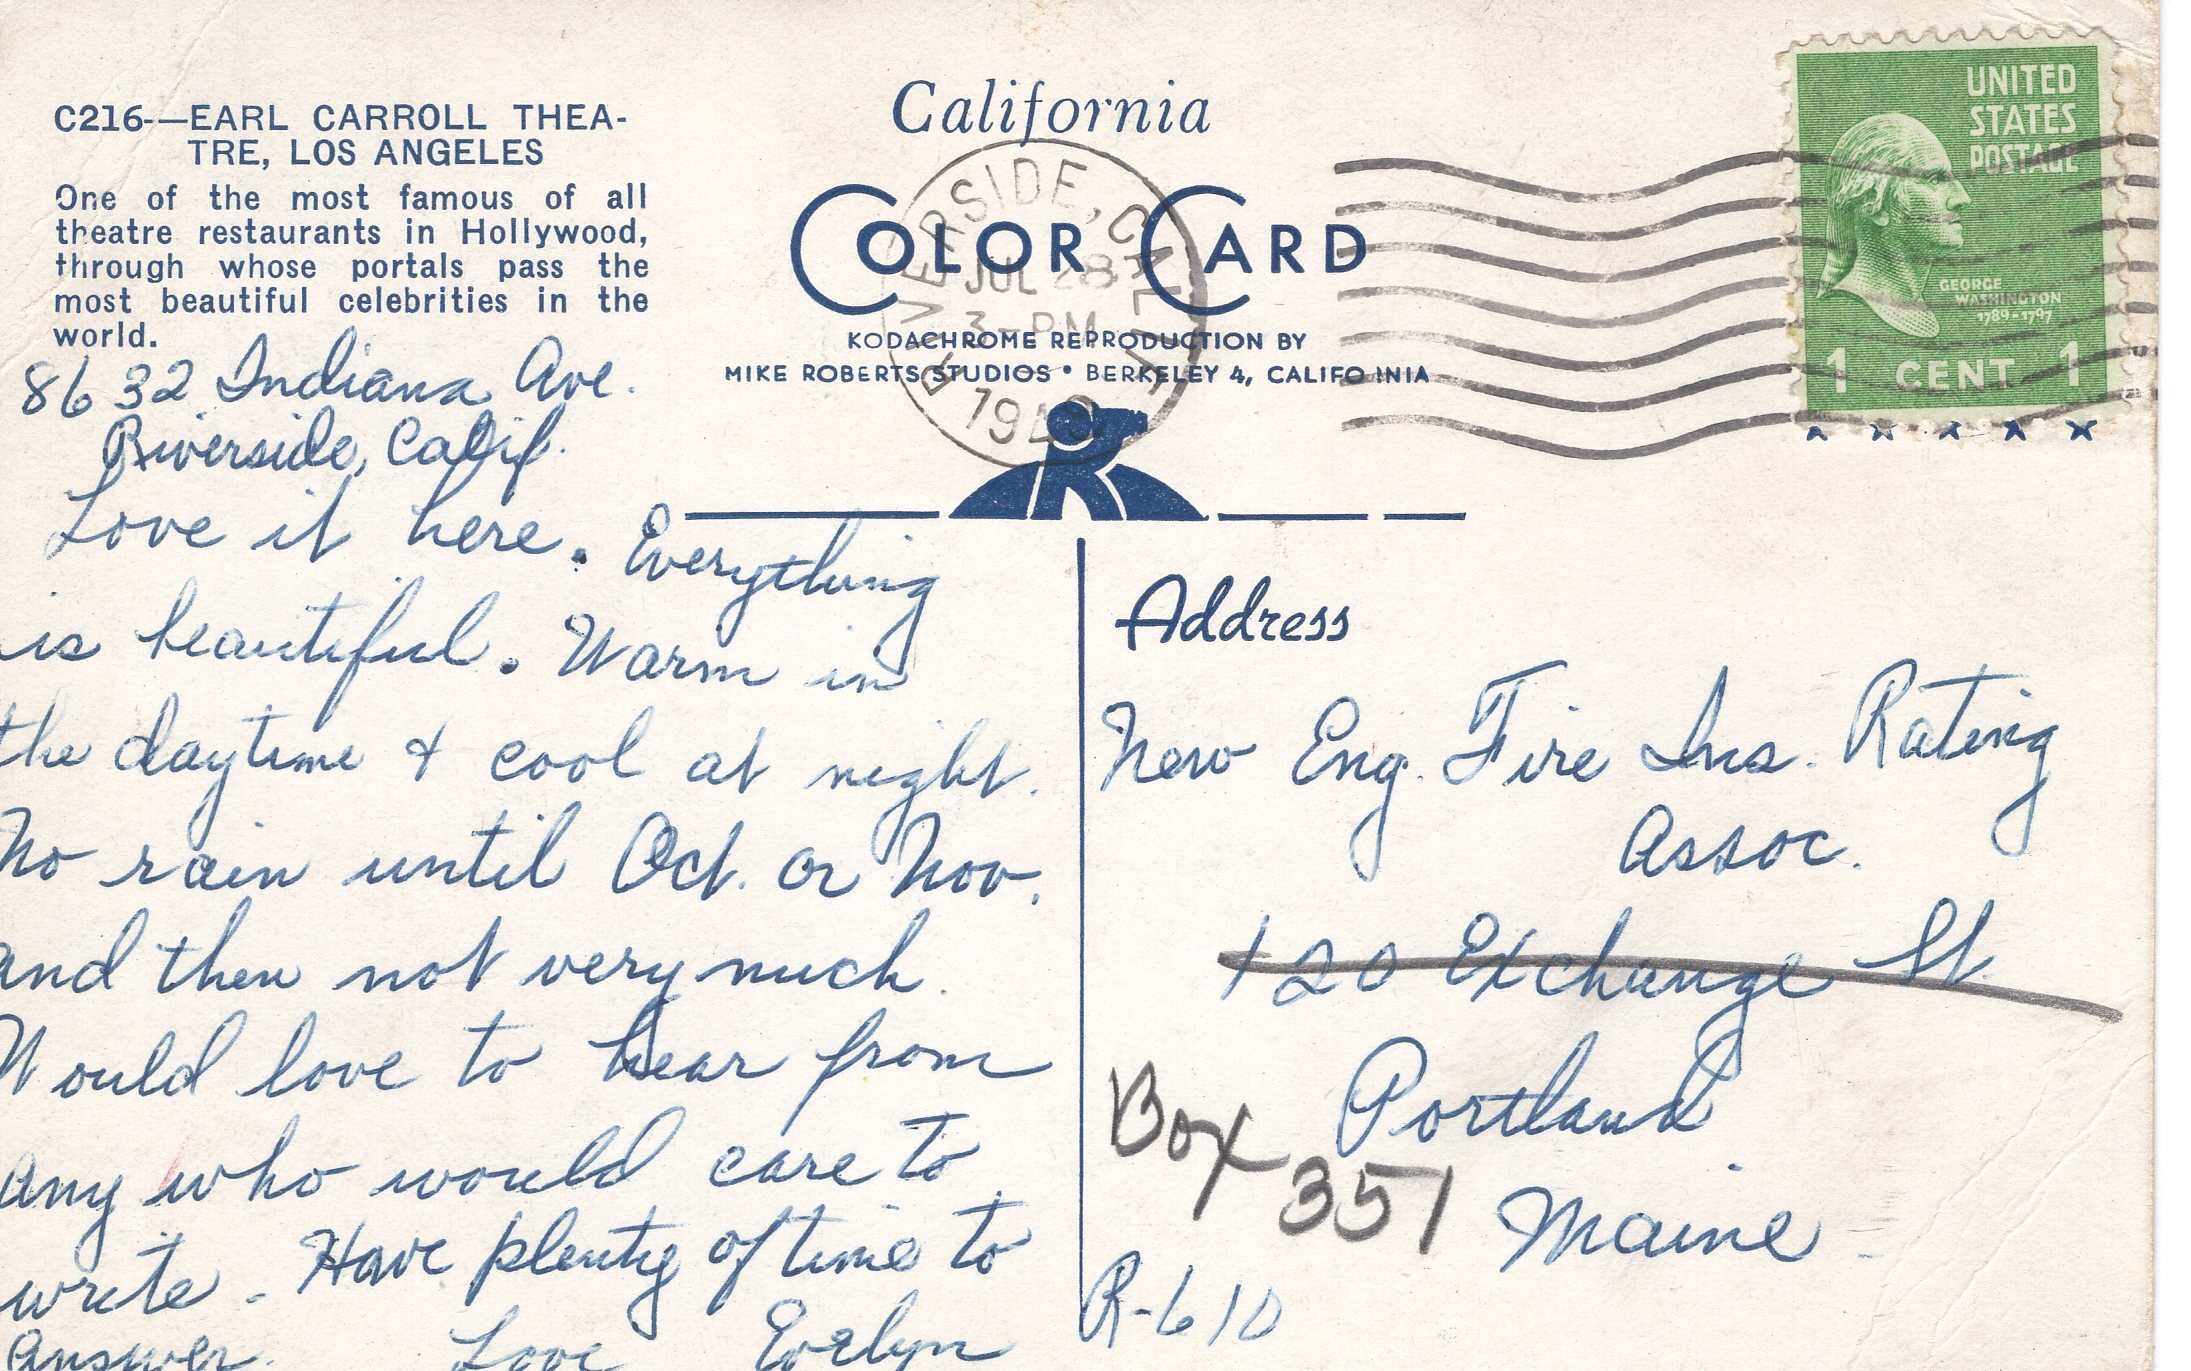 C216-—EARL CARROLL THEA-
TRE, LOS ANGELES
One of the most famous of all
theatre restaurants in Hollywood,
through whose portals pass the
most beautiful celebrities in the
world.
8632 Indiana Ave.
Riverside, Calif.
Love it here. Everything
is beautiful. Warm in
the daytime & cool at night.
No rain until Oct. or Nov.
and then not very much.
Would love to hear from
any who would care to
write. Have plenty of time to
answer.
Love Evelyn
California
COLOR CARD
KODACHROME REPRODUCTION BY
MIKE ROBERTS STUDIOS • BERKELEY 4, CALIFO INIA
RIVERSIDE, CALIF.
JUL 28
3-PM
UNITED
STATES
POSTAGE
GEORGE
WASHINGTON
1789-1797
1 CENT 1
Address
New Eng. Fire Ins. Rating
Assoc.
120 Exchange St.
Portland
Box 351
Maine
R-610